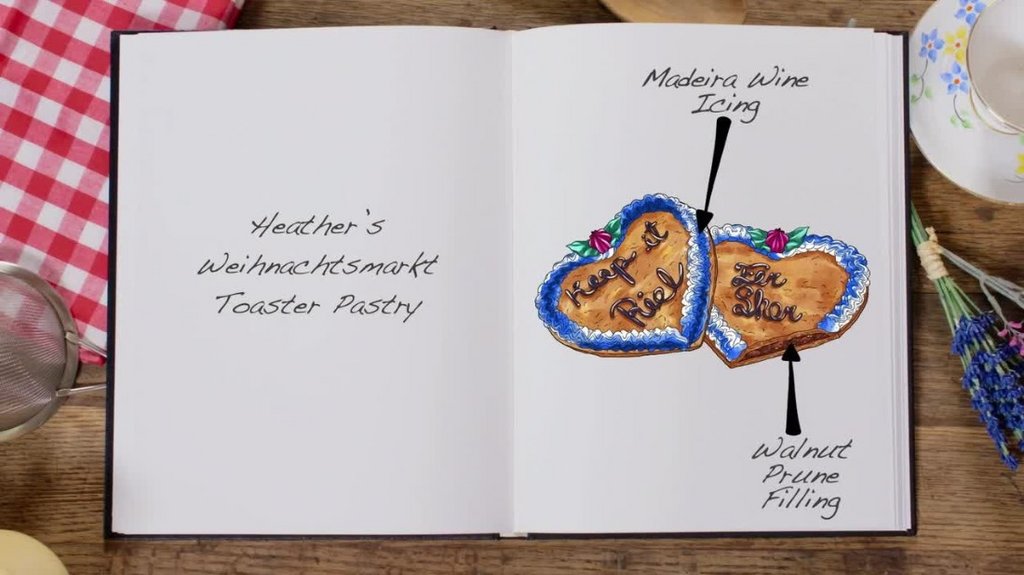 Heather's
Weihnachtsmarkt
Toaster Pastry
Madeira Wine
Icing
Keep it
Riel
Fer
Sher
Walnut
Prune
Filling